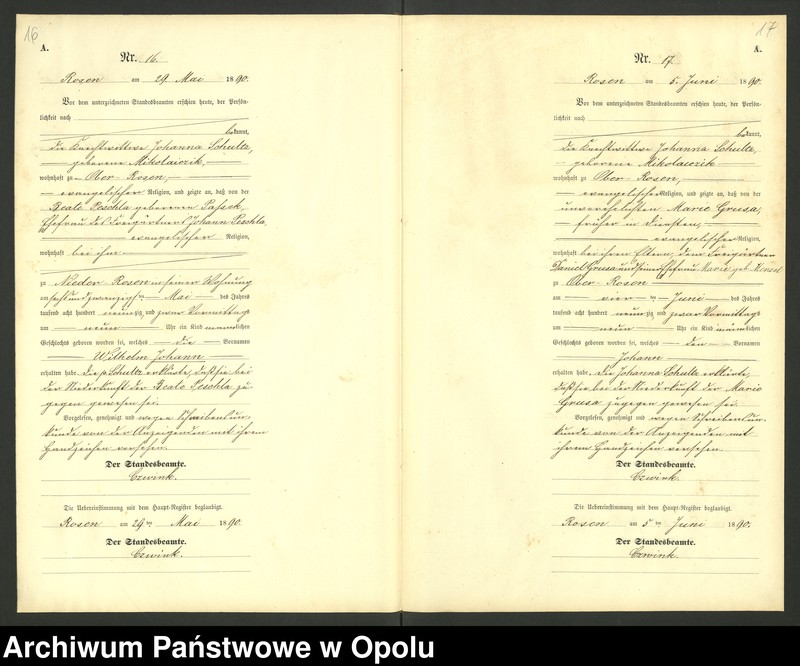 16
A.
Nr. 16.
Rosen am 29 Mai 1890.
Vor dem unterzeichneten Standesbeamten erschien heute, der Persön-
lichkeit nach
bekannt,
die Knechtwittwe Johanna Schultz,
geborene Mikolaiczik,
wohnhaft zu Ober-Rosen,
evangelischer Religion, und zeigte an, daß von der
Beate Peschla geborenen
Ehefrau des Freigärtners Johann Peschla,
evangelischer Religion,
wohnhaft bei ihm
zu Nieder-Rosen in seiner Wohnung
am sechsundzwanzigten Mai des Jahres
tausend acht hundert neunzig und zwar Vormittags
um neun Uhr ein Kind männlichen
Geschlechts geboren worden sei, welches die Vornamen
Wilhelm Johann
erhalten habe. Die p. Schultz erklärte, daß sie bei
der Niederkunft der Beate Peschla zu-
gegen gewesen sei.
Vorgelesen, genehmigt und wegen Schreibensun-
kunde von der Anzeigenden mit ihrem
Handzeichen versehen.
Der Standesbeamte.
Czwink.
Die Uebereinstimmung mit dem Haupt-Register beglaubigt.
Rosen am 29ten Mai 1890.
Der Standesbeamte.
Czwink.
17
A.
Nr. 17.
Rosen am 5. Juni 1890.
Vor dem unterzeichneten Standesbeamten erschien heute, der Persön-
lichkeit nach
bekannt,
die Knechtwittwe Johanna Schultz,
geborene Mikolaiczik
wohnhaft zu Ober-Rosen,
evangelischer Religion, und zeigte an, daß von der
unverehelichten Marie Grusa,
früher in Diensten,
evangelischer Religion,
wohnhaft bei ihren Eltern, dem Freigärtner
Daniel Grusa und seiner Ehefrau Marie geb.
zu Ober-Rosen
am vier ten Juni des Jahres
tausend acht hundert neunzig und zwar Vormittags
um neun Uhr ein Kind männlichen
Geschlechts geboren worden sei, welches den Vornamen
Johann
erhalten habe. Die Johanna Schultz erklärte,
daß sie bei der Niederkunft der Marie
Grusa zugegen gewesen sei.
Vorgelesen, genehmigt und wegen Schreibensun-
kunde von der Anzeigenden mit
ihrem Handzeichen versehen.
Der Standesbeamte.
Czwink.
Die Uebereinstimmung mit dem Haupt-Register beglaubigt.
Rosen am 5ten Juni 1890.
Der Standesbeamte.
Czwink.
Archiwum Państwowe w Opolu